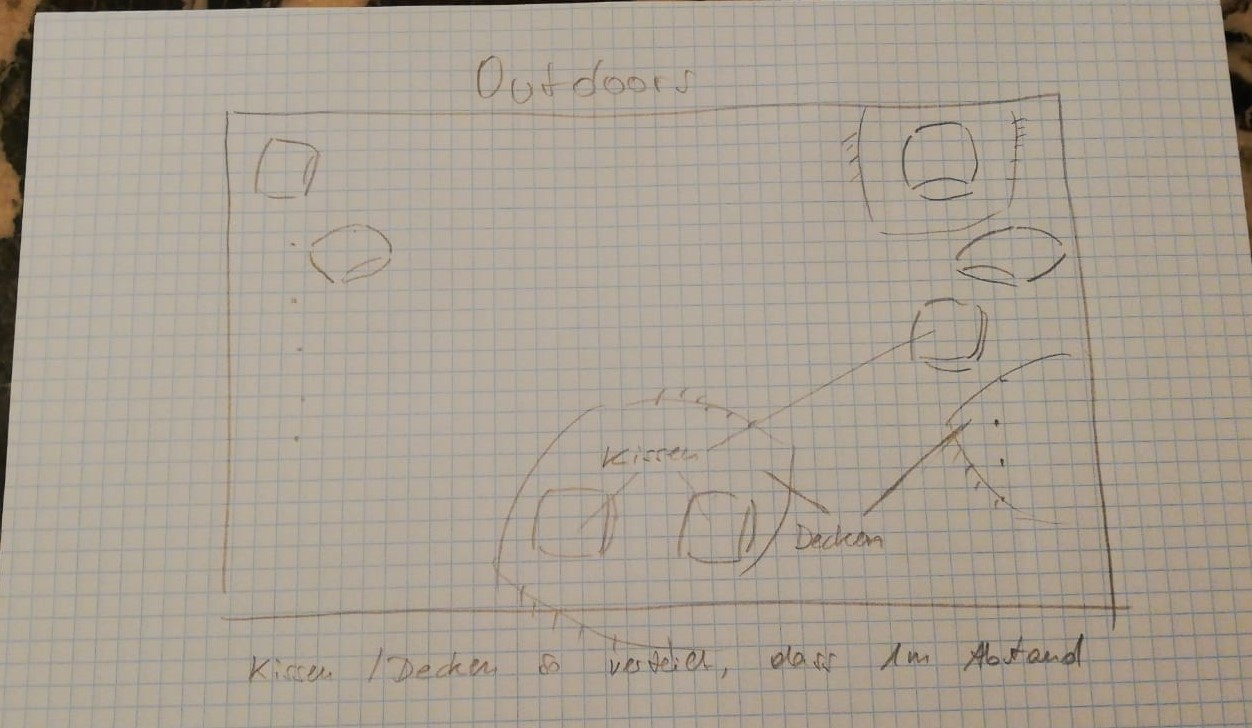 Outdoors
Kissen
Decken
Kissen / Decken so verteilt, dass 1m Abstand